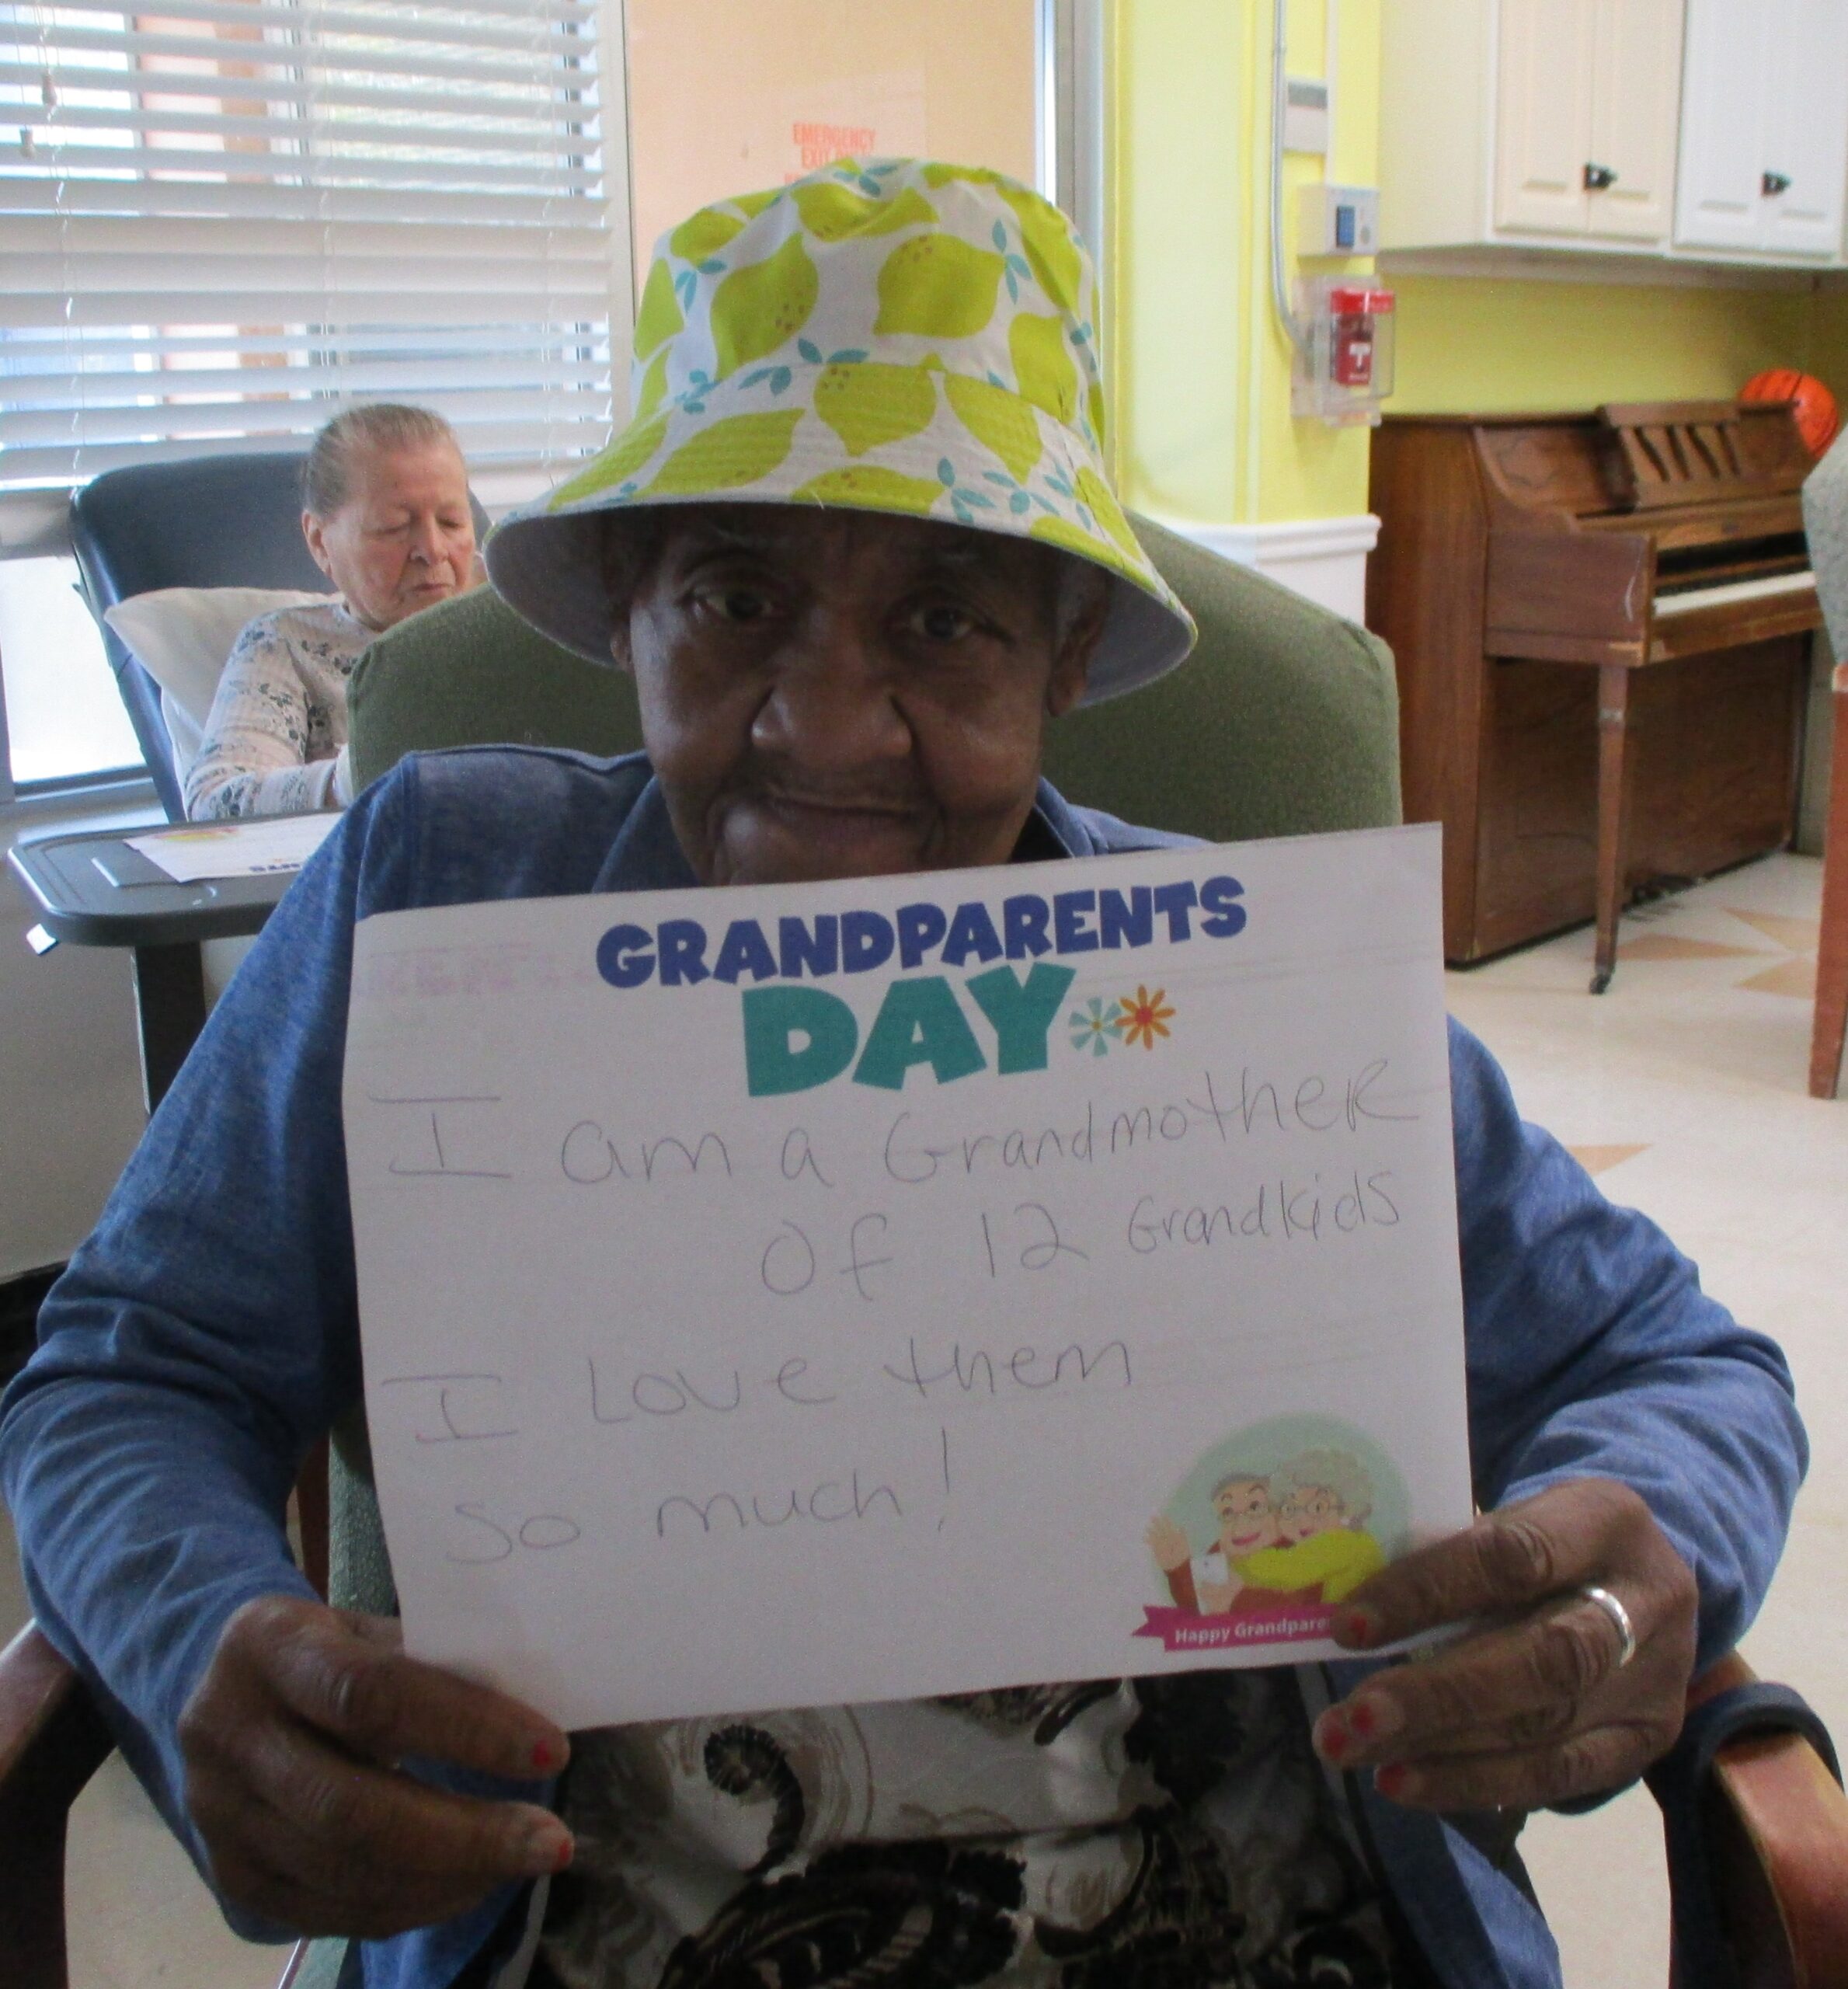 EMERGENCY
GRANDPARENTS
DAY
I am a Grandmother
of 12 Grandkids
I Love them
so much!
Happy Grandpare